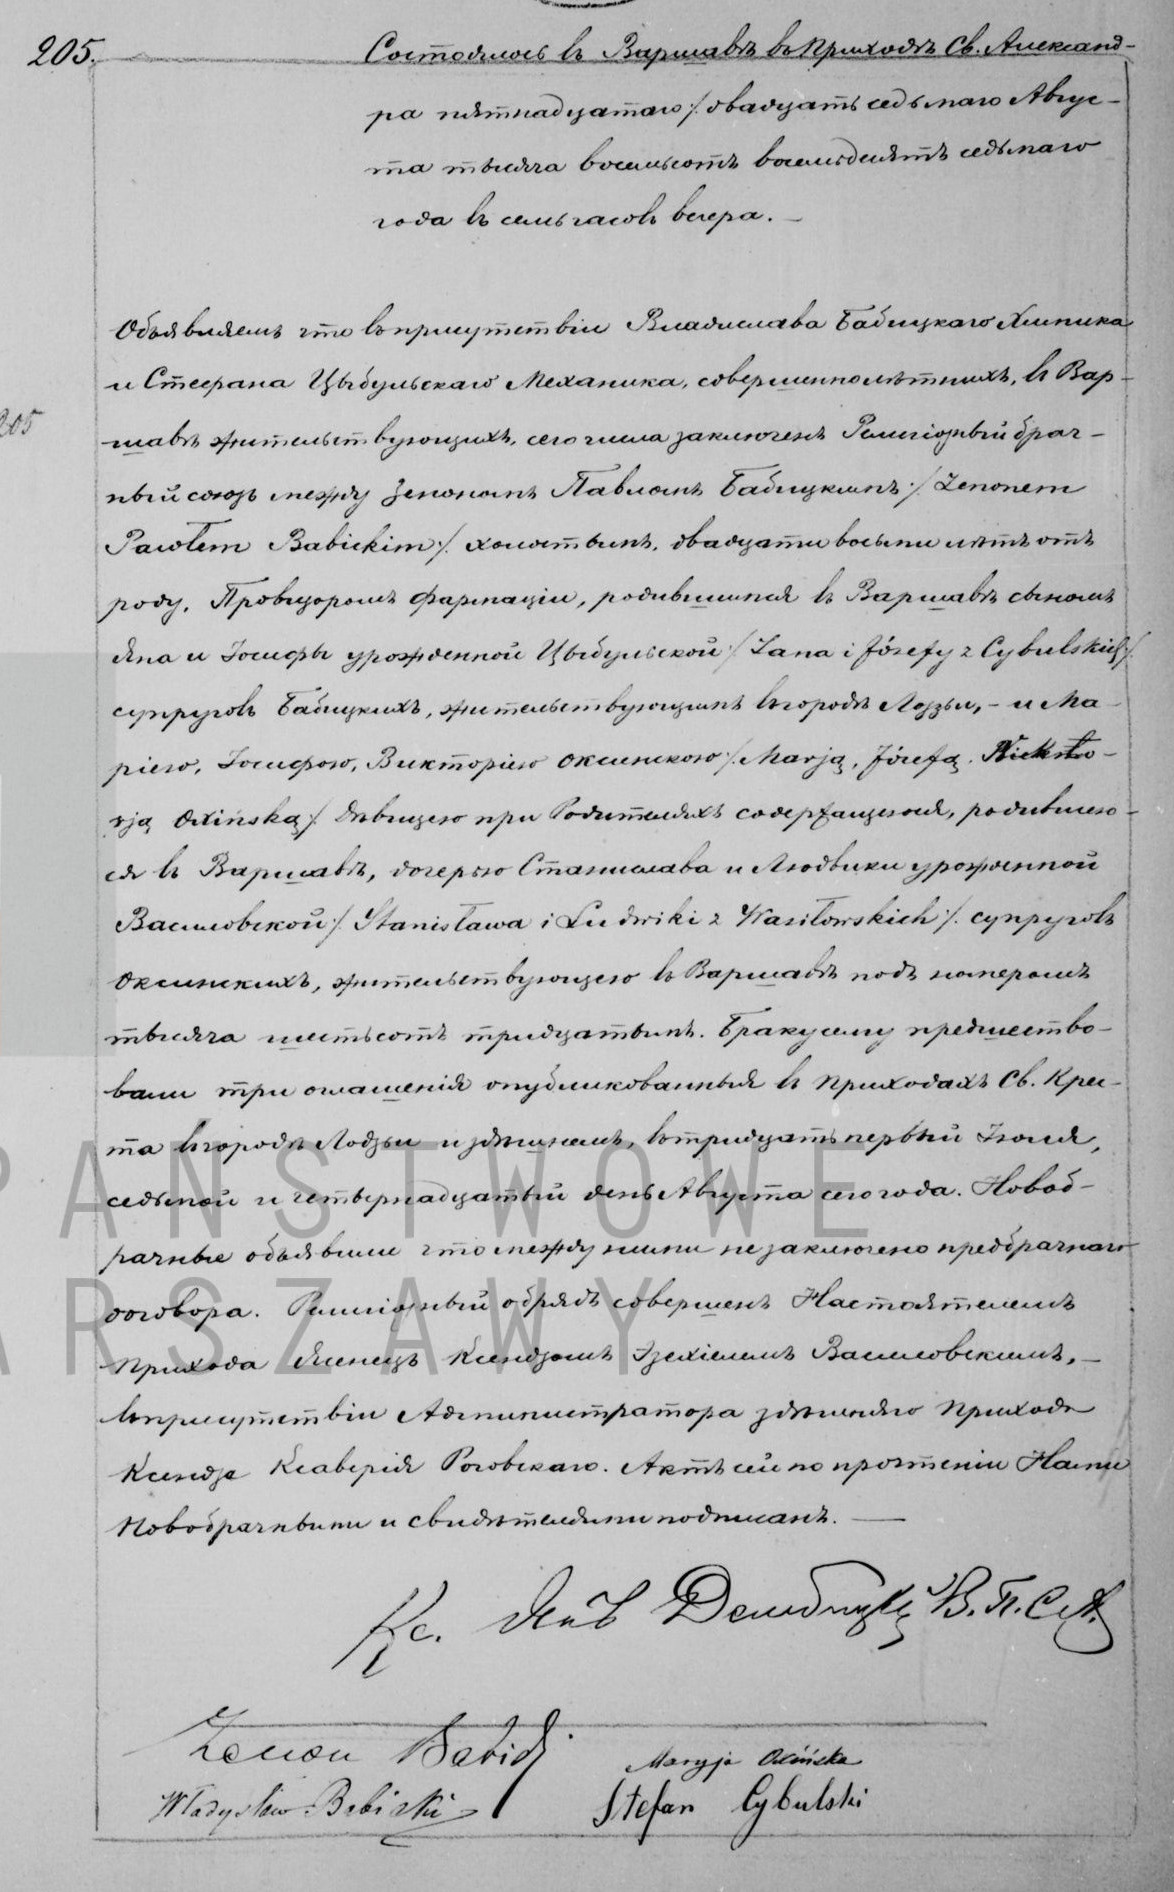 205.
Состоялось въ Варшавѣ въ Приходѣ Св. Александ-
ра пятнадцатаго /: двадцать седьмаго Авгус-
та тысяча восемьсотъ восемьдесятъ седьмаго
года въ семь часовъ вечера. —
Объявляемъ что въ присутствіи Владислава Бабицкаго Химика
и Стефана Цыбульскаго Механика, совершеннолѣтнихъ, въ Вар-
205
шавѣ жительствующихъ, сего числа заключенъ Религіозный брач-
ный союзъ между Зенономъ Павломъ Бабицкимъ :/ Zenonem
Pawłem Babickim :/ холостымъ, двадцати восьми лѣтъ отъ
роду, Провизоромъ Фармаціи, родившимся въ Варшавѣ сыномъ
Яна и Іосифы урожденной Цыбульской :/ Jana i Józefy z Cybulskich /:
супруговъ Бабицкихъ, жительствующимъ въ городѣ Лодзи, – и Ма-
ріею, Іосифою, Викторіею Оксинскою /: Marją, Józefą, Wikto-
rją Oxińską /: дѣвицею при Родителяхъ содержащеюся, родившею-
ся въ Варшавѣ, дочерью Станислава и Людвики урожденной
Василовской :/ Stanisława i Ludwiki z Wasiłowskich :/ супруговъ
Оксинскихъ, жительствующею въ Варшавѣ подъ номеромъ
тысяча шестьсотъ тридцатымъ. Браку сему предшество-
вали три оглашенія опубликованныя въ Приходахъ Св. Крес-
та въ городѣ Лодзи и здѣшнемъ, въ тридцать первый Іюля,
седьмой и четырнадцатый день Августа сего года. Новоб-
рачные объявили что между ними не заключено предбрачнаго
договора. Религіозный обрядъ совершенъ Настоятелемъ
Прихода Ксендзомъ Эзехіелемъ Василовскимъ, —
въ присутствіи Администратора здѣшняго Прихода
Ксендза Ксаверія Роговскаго. Актъ сей по прочтеніи Нами
Новобрачными и свидѣтелями подписанъ. —
Кс. Янъ В. П. С. А.
Zenon Babicki
Maryja Oxińska
Władysław Babicki
Stefan Cybulski
PAŃSTWOWE
ARSZAWY